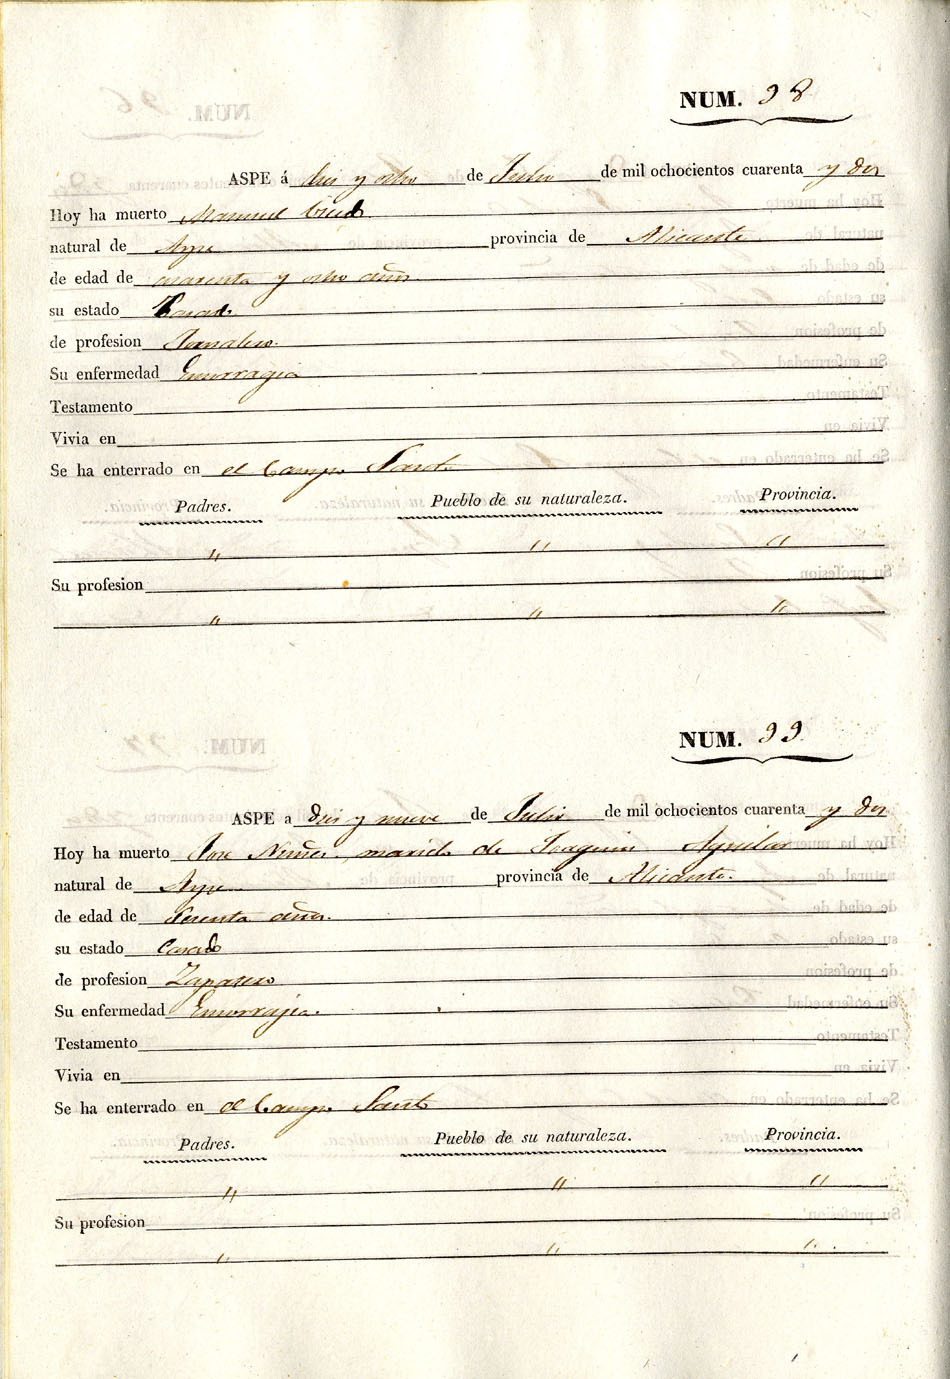 NUM. 98
ASPE á dies y ocho de Julio de mil ochocientos cuarenta y dos
Hoy ha muerto Manuel
natural de Aspe provincia de Alicante
de edad de cuarenta y ocho años
su estado Casado
de profesion Jornalero.
Su enfermedad Emorragia
Testamento
Vivia en
Se ha enterrado en el Campo Santo
Padres. Pueblo de su naturaleza. Provincia.
" " "
Su profesion
" " "
NUM. 99
ASPE a dies y nueve de Julio de mil ochocientos cuarenta y dos
Hoy ha muerto Jose Nuñes, marido de Joaquina Aguilar
natural de Aspe provincia de Alicante.
de edad de años.
su estado Casado
de profesion Zapatero
Su enfermedad Emorrajia.
Testamento
Vivia en
Se ha enterrado en el Campo Santo
Padres. Pueblo de su naturaleza. Provincia.
" " "
Su profesion
" " "